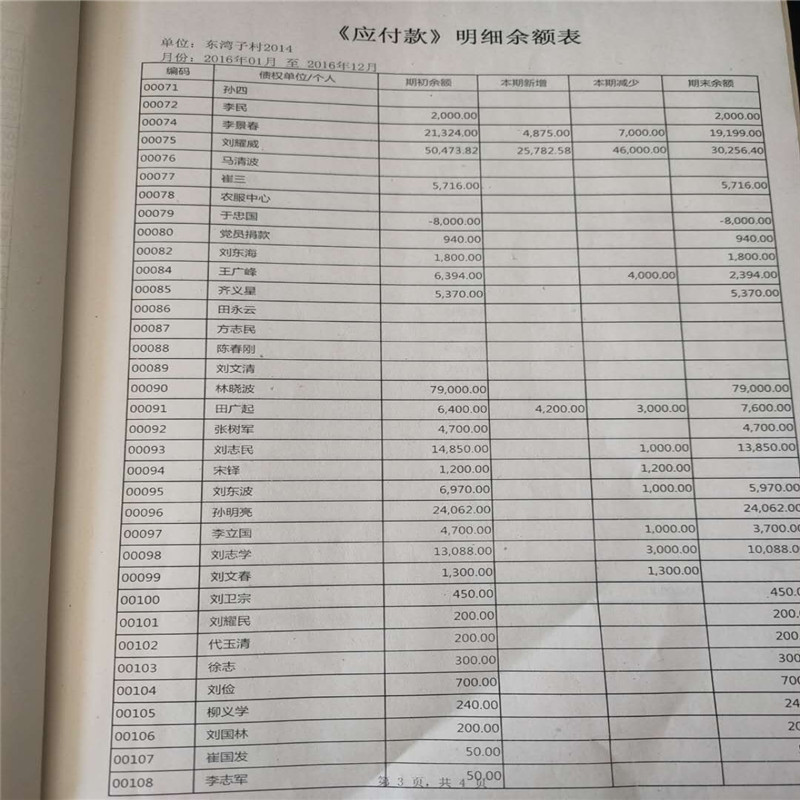 《应付款》明细余额表
单位: 东湾子村2014
月份: 2016年01月 至 2016年12月
编码 债权单位/个人 期初余额 本期新增 本期减少 期末余额
00071 孙四
00072 李民 2,000.00 2,000.00
00074 李景春 21,324.00 4,875.00 7,000.00 19,199.00
00075 刘耀威 50,473.82 25,782.58 46,000.00 30,256.40
00076 马清波
00077 崔三 5,716.00 5,716.00
00078 农服中心
00079 于忠国 -8,000.00 -8,000.00
00080 党员捐款 940.00 940.00
00082 刘东海 1,800.00 1,800.00
00084 王广峰 6,394.00 4,000.00 2,394.00
00085 齐义星 5,370.00 5,370.00
00086 田永云
00087 方志民
00088 陈春刚
00089 刘文清
00090 林晓波 79,000.00 79,000.00
00091 田广起 6,400.00 4,200.00 3,000.00 7,600.00
00092 张树军 4,700.00 4,700.00
00093 刘志民 14,850.00 1,000.00 13,850.00
00094 宋铎 1,200.00 1,200.00
00095 刘东波 6,970.00 1,000.00 5,970.00
00096 孙明亮 24,062.00 24,062.00
00097 李立国 4,700.00 1,000.00 3,700.
00098 刘志学 13,088.00 3,000.00 10,088.0
00099 刘文春 1,300.00 1,300.00
00100 刘卫宗 450.00 450.
00101 刘耀民 200.00 200.
00102 代玉清 200.00 200.
00103 徐志 300.00 300
00104 刘俭 700.00 700
00105 柳义学 240.00 24
00106 刘国林 200.00 20
00107 崔国发 50.00
00108 李志军 50.00
第 3 页, 共 4 页